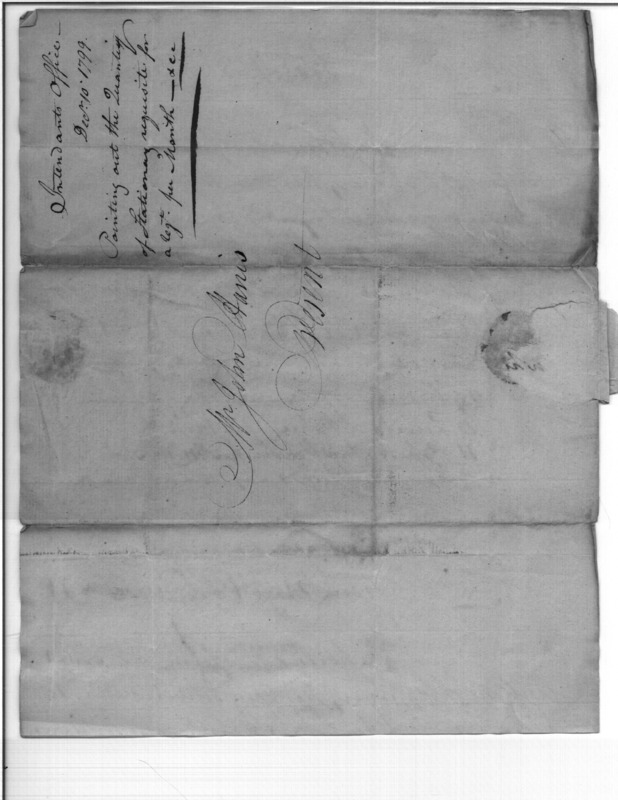 Intendants Office -
Decr. 10th 1799.
Pointing out the Quantity
of Stationary requisite for
a Regt. per Month - &c
Mr John Harris
Present